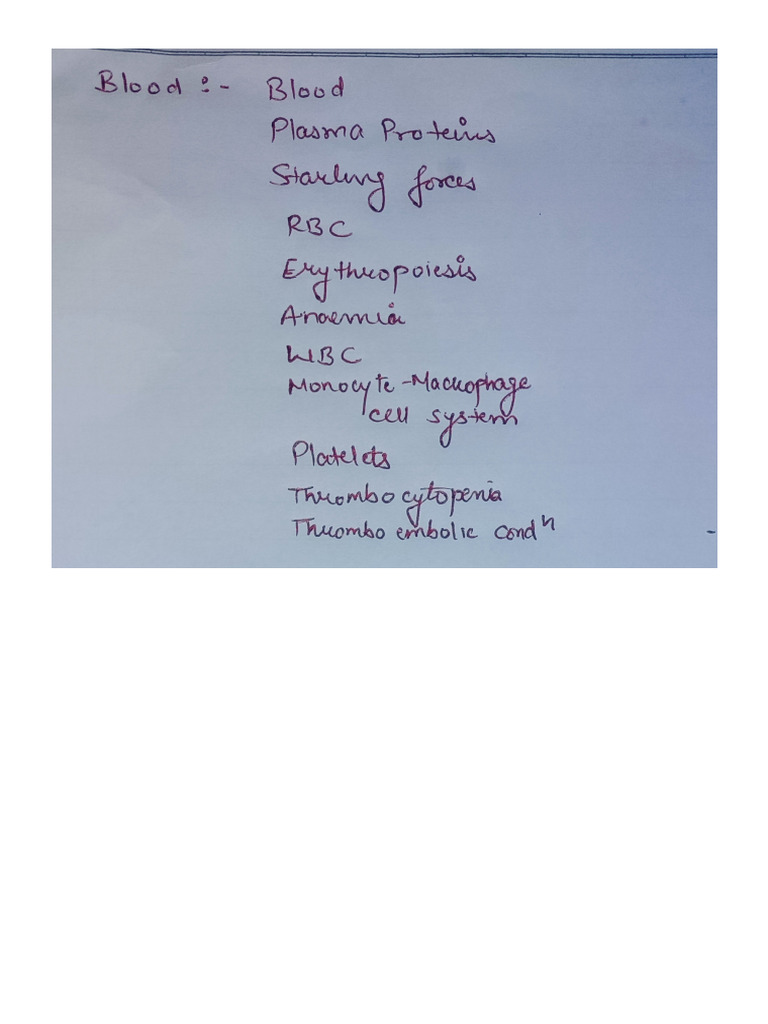 Blood :- Blood
Plasma Proteins
Starling forces
RBC
Erythropoiesis
Anaemia
WBC
Monocyte-Macrophage
cell system
Platelets
Thrombocytopenia
Thrombo embolic condⁿ